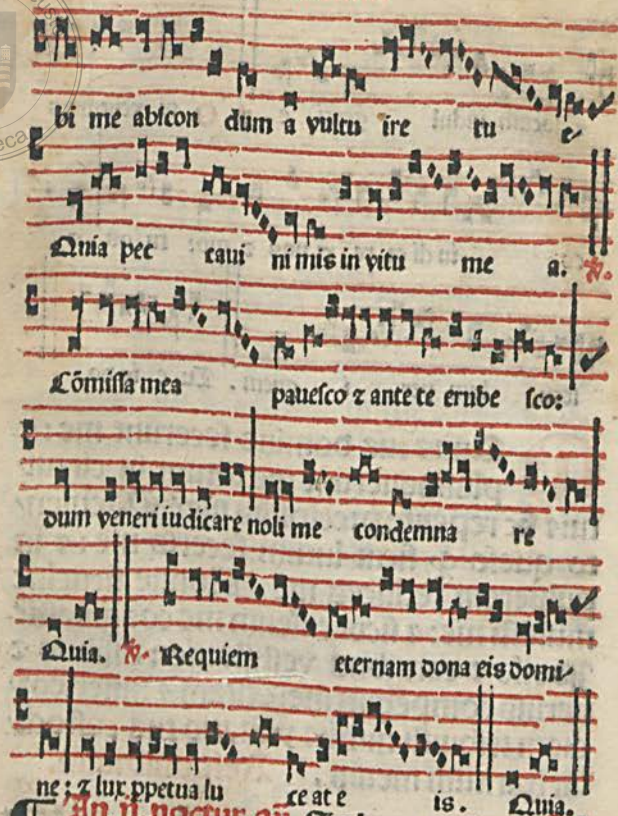 bi me abscon dum a vultu ire tu e
Quia pec caui ni mis in vitu me a. ℣.
Cōmissa mea pauesco ⁊ ante te erube sco:
dum veneri iudicare noli me condemna re
Quia. ℣. Requiem eternam dona eis domi
ne: ⁊ lux ppetua lu ce at e is. Quia.
An ij noctur